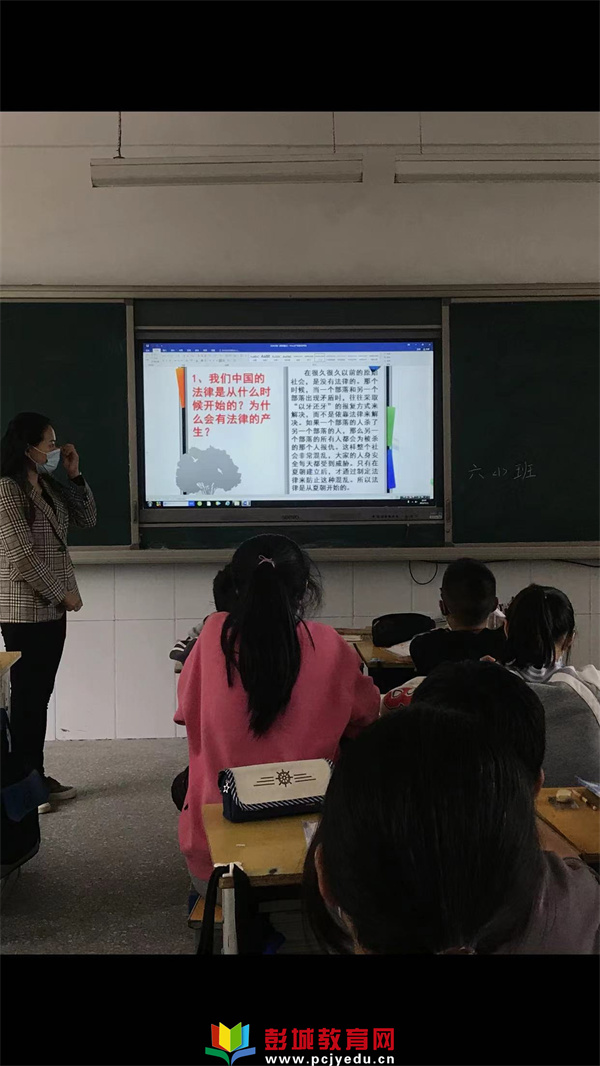 1、我们中国的
法律是从什么时
候开始的？为什
么会有法律的产
生？
在很久很久以前的原始
社会，是没有法律的。那个
时候，当一个部落和另一个
部落出现矛盾时，往往采取
“以牙还牙”的报复方式来
解决，而不是依靠法律来解
决。如果一个部落的人杀了
另一个部落的人，那么另一
个部落的所有人都会为被杀
的那个人报仇。这样整个社
会非常混乱，大家的人身安
全每天都受到威胁。只有在
夏朝建立后，才通过制定法
律来防止这种混乱。所以法
律是从夏朝开始的。
六小班
彭城教育网
www.pcjyedu.cn